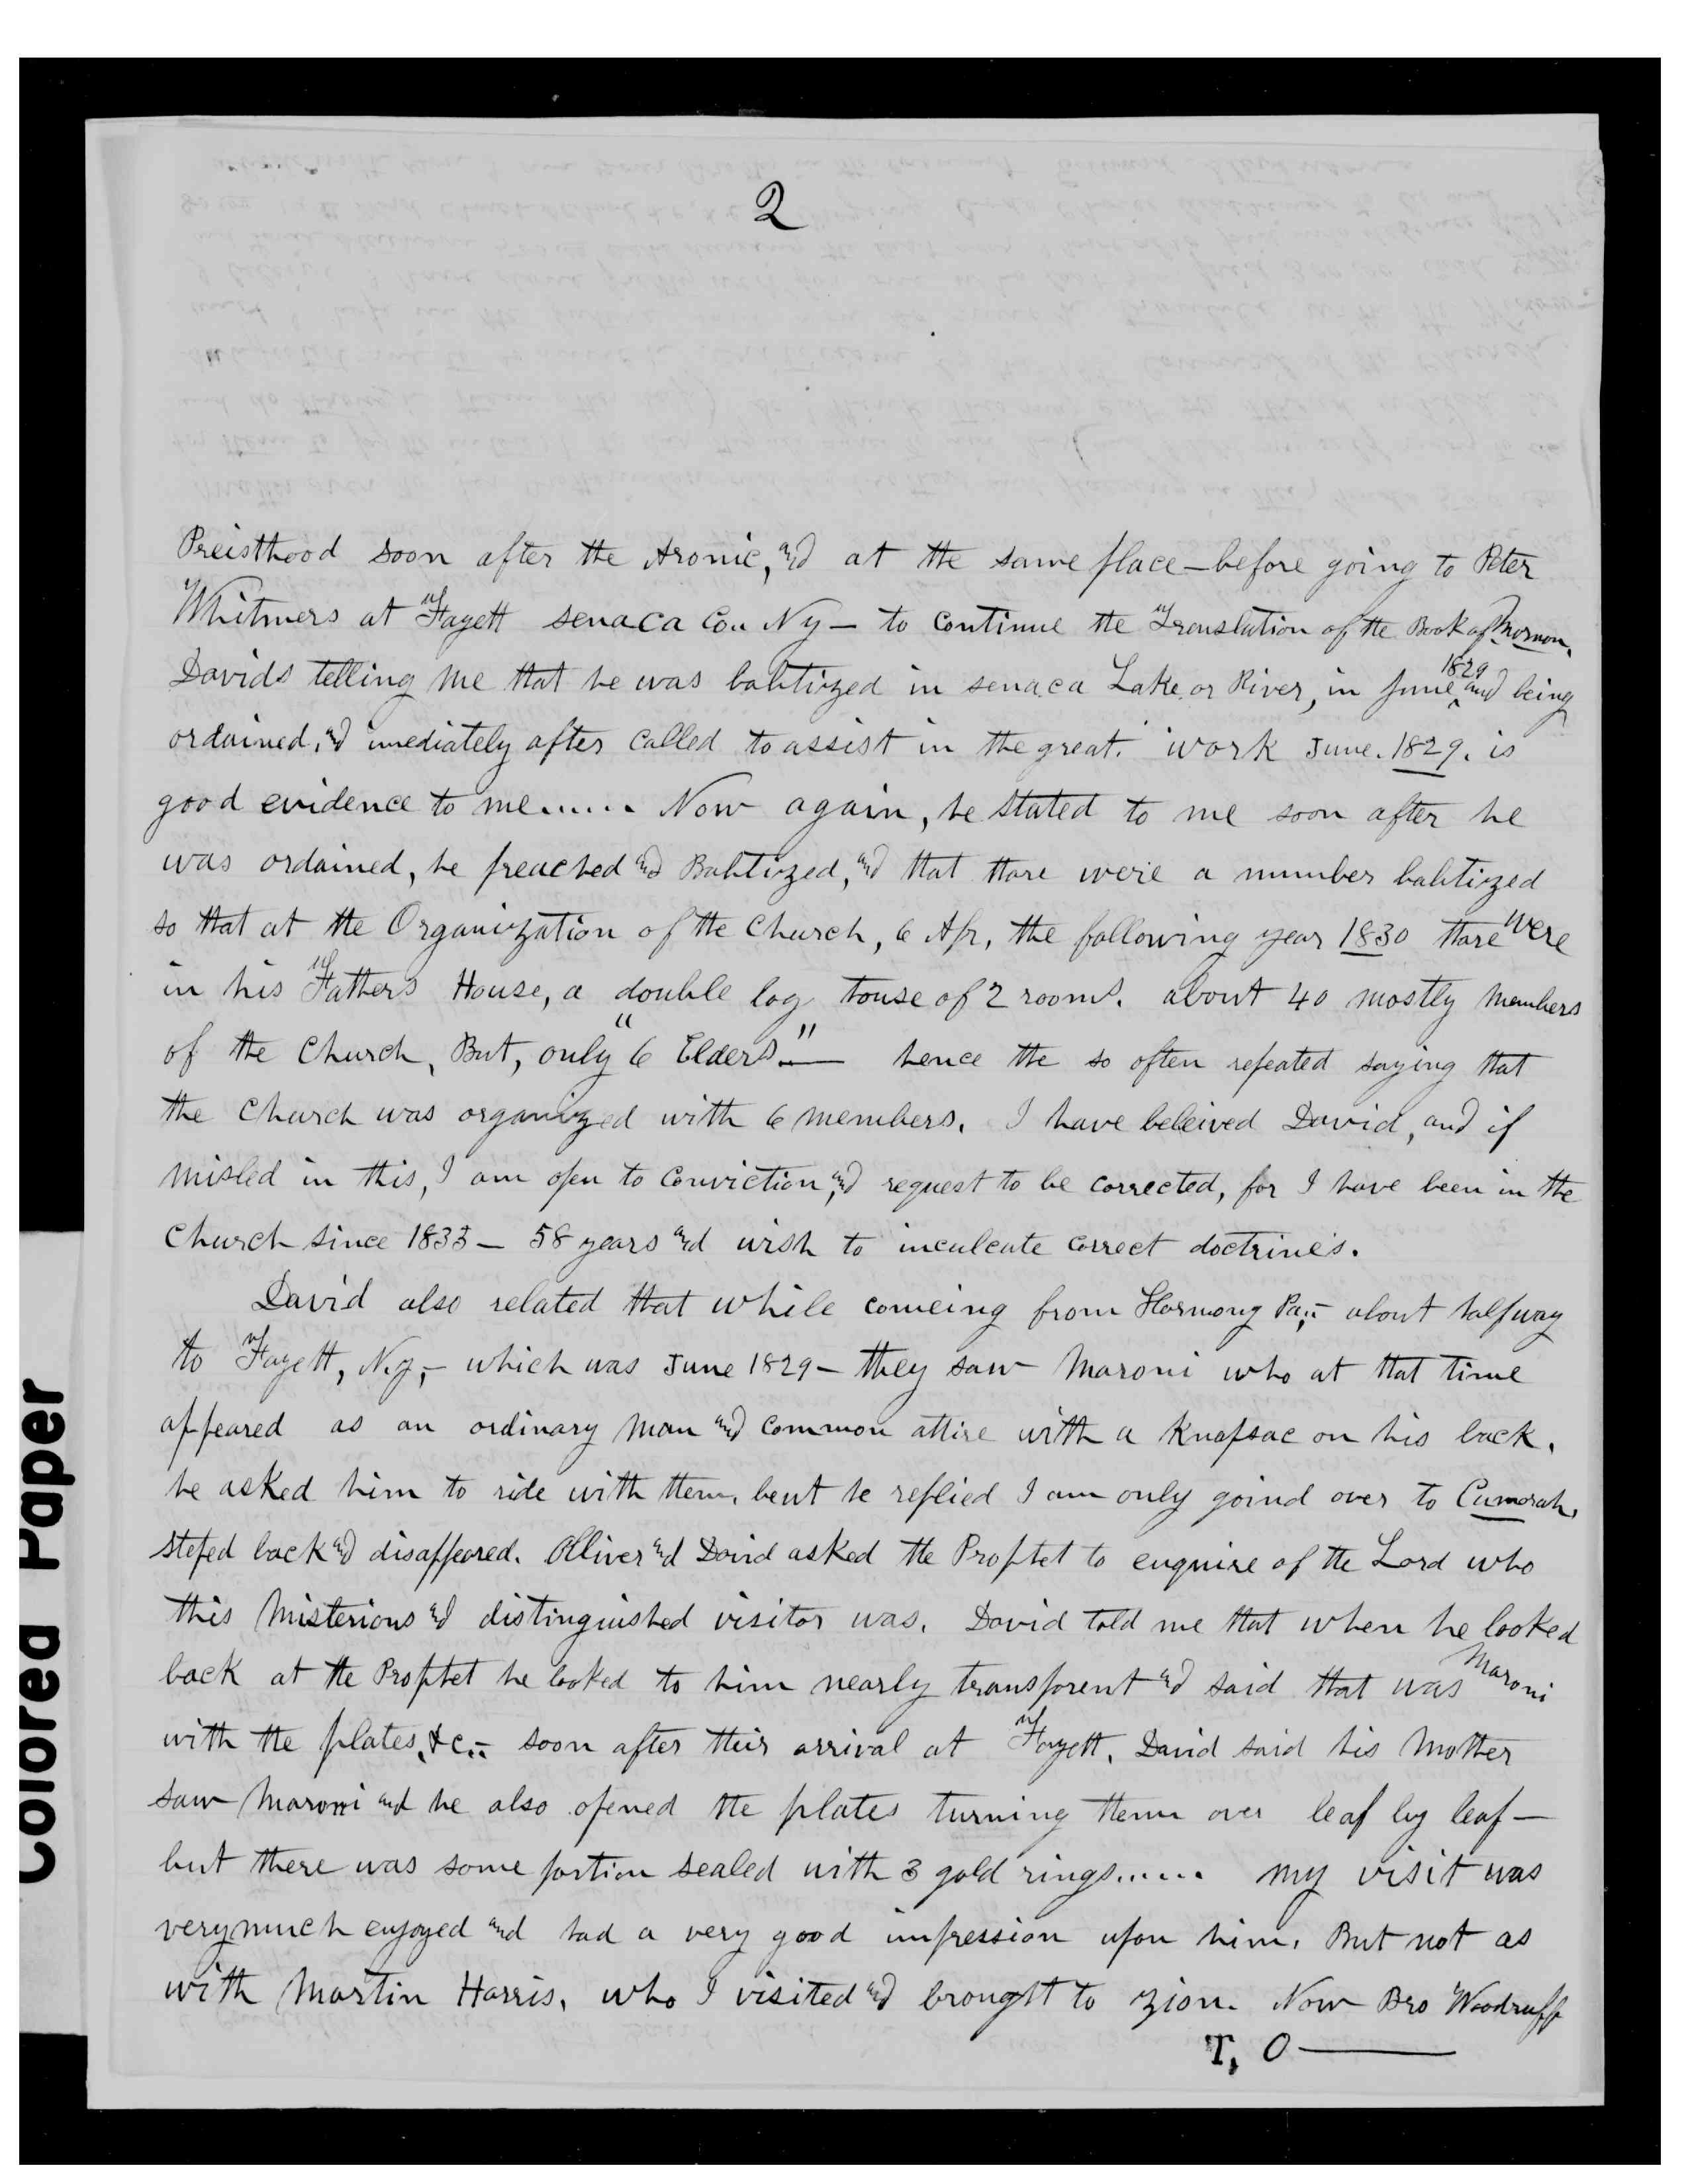 2
Preisthood soon after the Aronic, and at the same place – before going to Peter
Whitmers at Fayett senaca Cou Ny – to continue the Translation of the Book of Mormon.
Davids telling me that he was babtized in senaca Lake or River, in June 1829 and being
ordained, and imediately after called to assist in the great. work June. 1829. is
good evidence to me...... Now again, he stated to me soon after he
was ordained, he preached and Babtized, and that thare were a number babtized
so that at the Organization of the Church, 6 Apr, the following year 1830 thare were
in his Fathers House, a double log house of 2 rooms. about 40 mostly members
of the Church, But, only "6 Elders." — hence the so often repeated saying that
the Church was organized with 6 members. I have beleived David, and if
misled in this, I am open to conviction, and request to be corrected, for I have been in the
Church since 1833 – 58 years and wish to inculcate correct doctrines.
David also related that while comeing from Harmony Pa,:- about halfway
to Fayett, N.y,- which was June 1829 – they saw Maroni who at that time
appeared as an ordinary man and common attire with a knapsac on his back.
he asked him to ride with them, beut he replied I am only goind over to Cumorah,
steped back and disappeared. Olliver and David asked the Prophet to enquire of the Lord who
this Misterious and distinguished visitor was. David told me that when he looked
back at the Prophet he looked to him nearly transparent and said that was Maroni
with the plates, &c.- soon after their arrival at Fayett, David said his Mother
saw Maroni and he also opened the plates turning them over leaf by leaf –
but there was some portion sealed with 3 gold rings...... My visit was
very much enjoyed and had a very good impression upon him. But not as
with Martin Harris, who I visited and brought to zion. Now Bro Woodruff
T, O —
Colored Paper